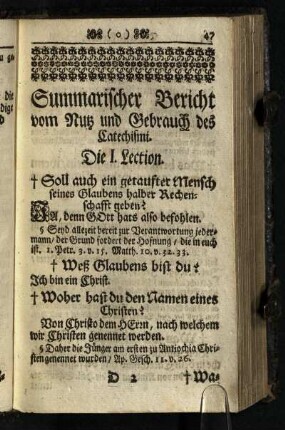 ( o ) 47
Summarischer Bericht
vom Nutz und Gebrauch des
Catechismi.
Die I. Lection.
† Soll auch ein getaufter Mensch
seines Glaubens halber Rechen-
schafft geben?
JA, denn GOtt hats also befohlen.
§ Seyd allezeit bereit zur Verantwortung jeder-
mann/ der Grund fordert der Hofnung/ die in euch
ist. 1. Petr. 3. v. 15. Matth. 10. v. 32. 33.
† Weß Glaubens bist du?
Ich bin ein Christ.
† Woher hast du den Namen eines
Christen?
Von Christo dem HErrn, nach welchem
wir Christen genennet werden.
§ Daher die Jünger am ersten zu Antiochia Chri-
sten genennet wurden/ Ap. Gesch. 11. v. 26.
D 2 † Wa-